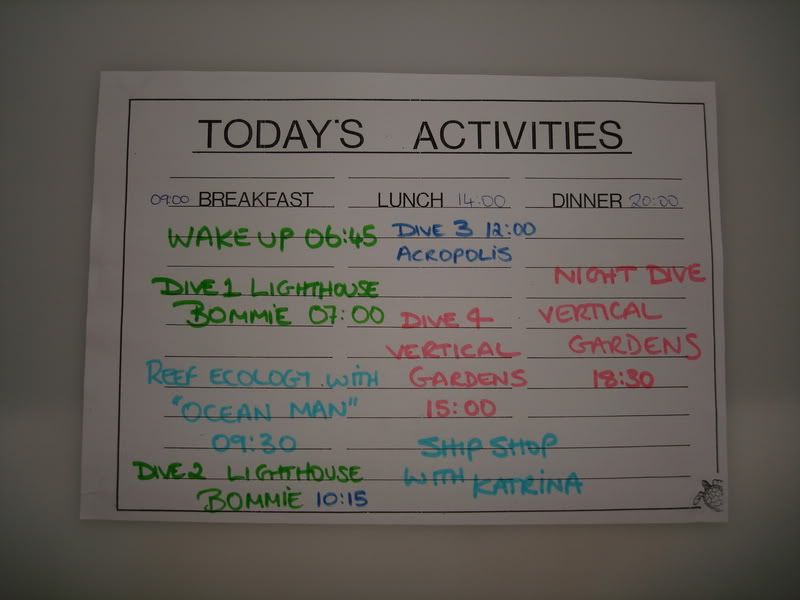 TODAY'S ACTIVITIES
09:00 BREAKFAST LUNCH 14:00 DINNER 20:00
WAKE UP 06:45
DIVE 1 LIGHTHOUSE
BOMMIE 07:00
REEF ECOLOGY WITH
"OCEAN MAN"
09:30
DIVE 2 LIGHTHOUSE
BOMMIE 10:15
DIVE 3 12:00
ACROPOLIS
DIVE 4
VERTICAL
GARDENS
15:00
SHIP SHOP
WITH KATRINA
NIGHT DIVE
VERTICAL
GARDENS
18:30